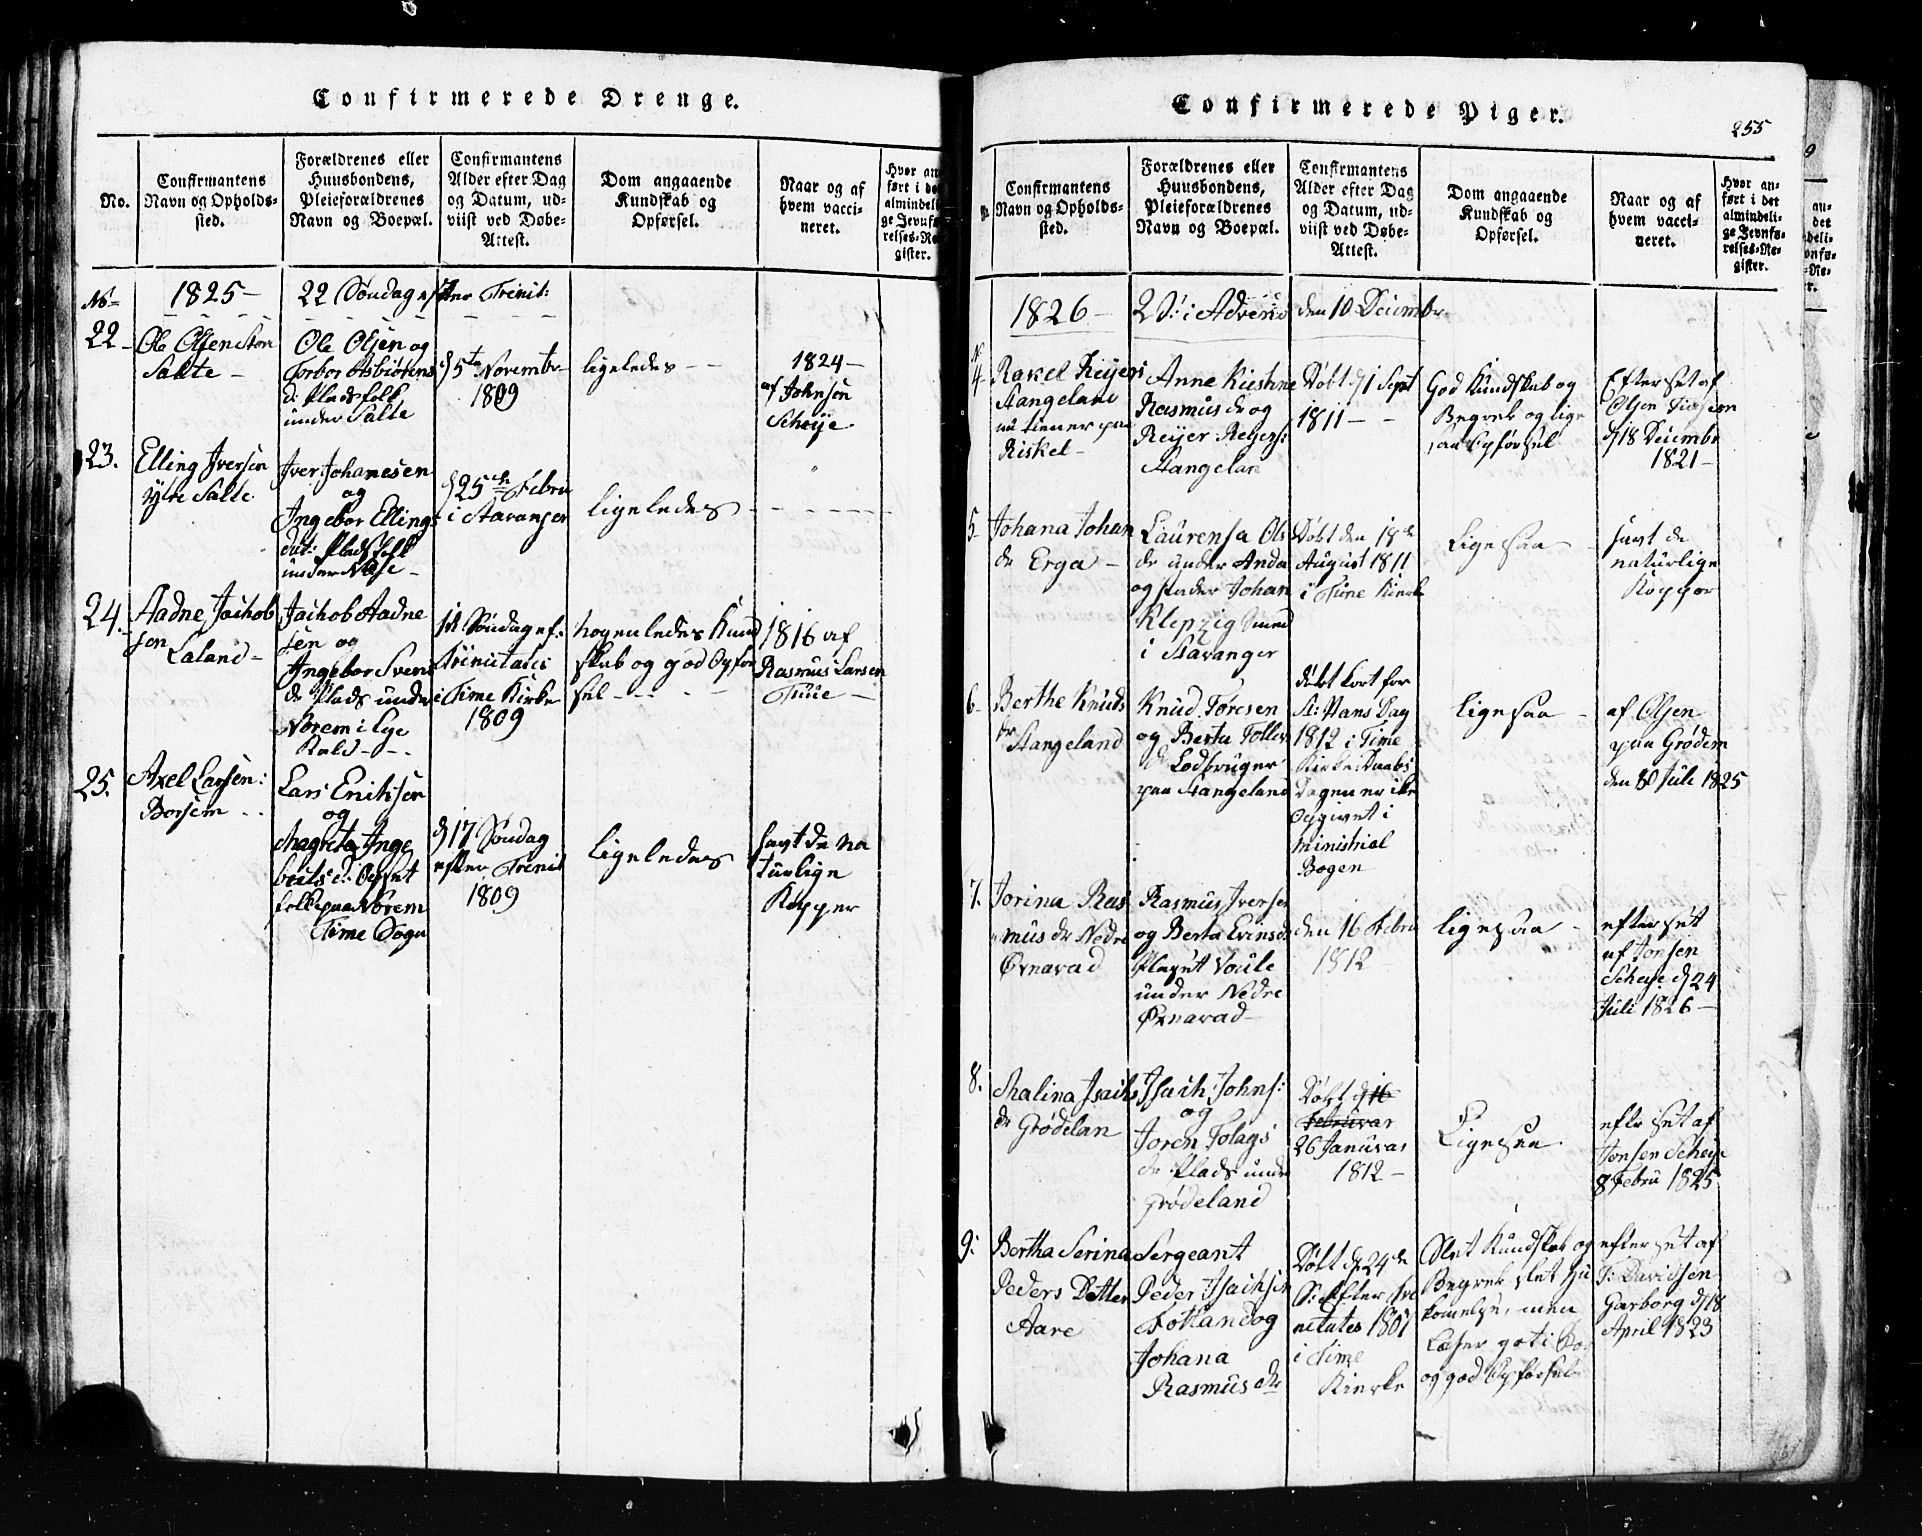 Confirmerede Drenge.
No.
Confirmantens
Navn og Opholds-
sted.
Forældrenes eller
Huusbondens,
Pleieforældrenes
Navn og Boepæl.
Confirmantens
Alder efter Dag
og Datum, ud-
viist ved Døbe-
Attest.
Dom angaaende
Kundskab og
Opførsel.
Naar og af
hvem vacci-
neret.
Hvor an
ført i de
almindeli
ge Jevnfø
relses-Re
gister.
No
1825 -
22 Søndag efter Trinit:
22
Ole Olsen
Salte -
Ole Olsen og
Torbor Asbiørens
d: Pladsfolk
under Salte
d 5te Novembr
1809
ligeledes - -
1824 -
af Johnsen
Scheije
23.
Elling Iversen
ytre Salte
Iver Johanesen
og
Ingebor Ellings
dat: Pladsfolk
under Nase -
d 25de Febru
i Stavanger
ligeledes - - - -
24.
Aadne Jachob
sen
Laland -
Jachob Aadne
sen og
Ingebor Svens
dr Plads under
Norem i Lye
Kald - -
Søndag ef.
Trinitatis
i Time Kirke
1809
nogenledes Kund
skab og god Opfør
sel - - - -
1816 af
Rasmus Larsen
Tiue -
25.
Axel Larsen:
Borsem - -
Lars Eriksen
og
Magreta Inge
brits d: Opset
folk paa Norem
Time Sogn
d 17 Søndag
efter Trinit
1809
ligeledes
havt de na
turlige
Kopper
Confirmerede Piger.
255
Confirmantens
Navn og Opholds-
sted.
Forældrenes eller
Huusbondens,
Pleieforældrenes
Navn og Boepæl.
Confirmantens
Alder efter Dag
og Datum, ud-
viist ved Døbe-
Attest.
Dom angaaende
Kundskab og
Opførsel.
Naar og af
hvem vacci-
neret.
Hvor an-
ført i det
almindeli-
ge Jevnfø-
relses-Re-
gister.
1826 -
2 S: i Advend den 10 Decembr
4
Rakel Reijers
Stangeland
nu tiener paa
Riskel -
Anne Kirstine
Rasmus dr og
Reijer Reijers:
Stangelan
Døbt d 1 Sept
1811 - -
God Kundskab og
Begreb og lige
saa Opførsel
Efter set af
Olsen
d 18 Decembr
1821 -
5
Johana Johan
dr Erga -
Laurensa Ols
dr under Anda
og fader Johan
Klepzig Smed
i Stavanger
Døbt den 18de
August 1811
i Time Kierke
Lige saa -
havt de
naturlige
Kopper
6
Berthe Knuds
dr Stangeland
Knud Toresen
og Berta Tollev
dr Lodbruger
paa Stangeland
døbt kort for
St: Hans Dag
1812 i Time
Kirke: Daabs
Dagen er ike
Opgivet i
Ministrial
Bogen
ligesaa -
af Olsen
paa Grødem
den 8 Juli 1825
7.
Jorina Ras
mus dr Nedre
Øxnavad
Rasmus Iversen
og Berta Evinsdr
Plaset Voule
under Nedre
Øxnavad -
den 16 Febru
1812 -
ligesaa -
efter set
af Jonsen
Scheije d 24
Juli 1826 -
8.
Malina Isachs
dr Grødelan
Isach Johns:
og
Joren Tolags
dr Plads under
Grødeland
Døbt d 16
Februvar
26 Januvar
1812 -
Ligesaa
efter set af
Jonsen Scheije
8 Febru 1825
9:
Bertha Serina
Peders Datter
Aare
Sergeant
Peder Isachsen
Fotland og
Johana
Rasmus dr
Døbt d 24de
S: Efter tri
netates 1807
i Time
Kierke
Slet Kundskab og
Begreb slet Hu
komelse, men
Læser got i Bog
og god Opførsel
efter set af
T: Davidsen
Garborg d 18
April 1823